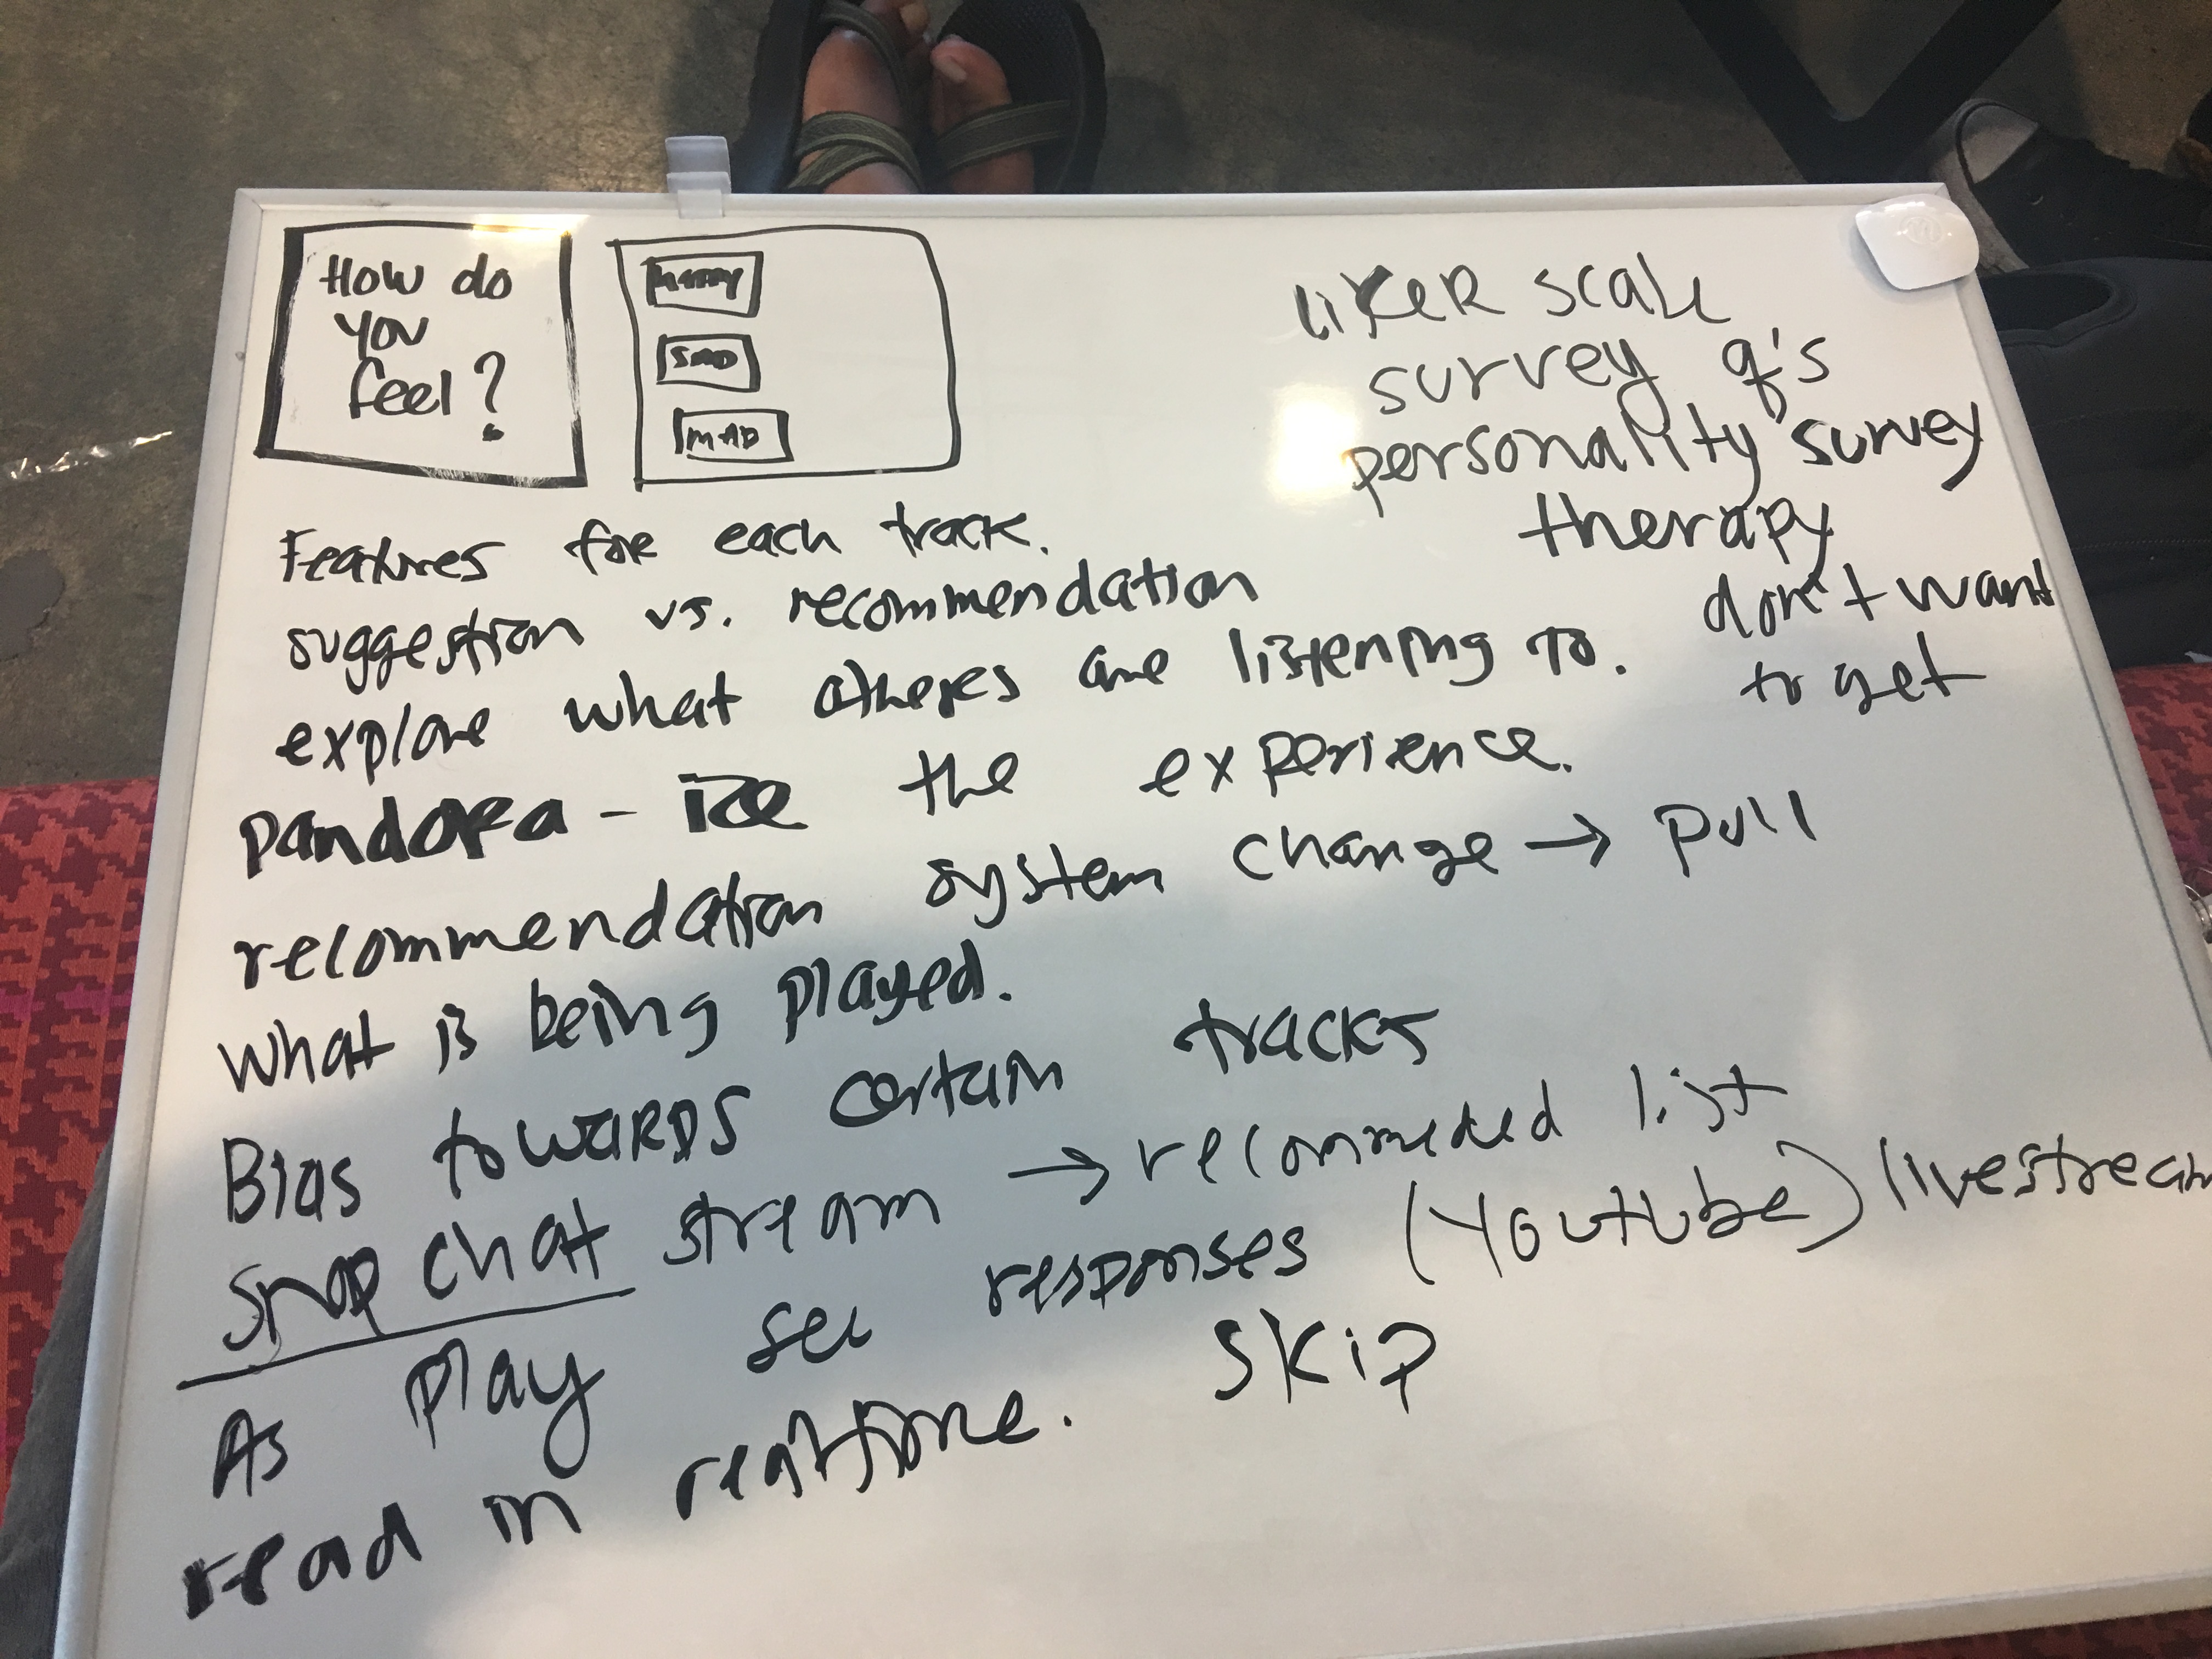 How do
you
feel?
HAPPY
SAD
liker scale
survey q's
personality survey
therapy
don't want
to get
Features for each track.
suggestion vs. recommendation
explore what others are listening to.
pandora - the experience.
recommendation system change → pull
what is being played.
Bias towards certain tracks
snap chat stream → recommended list
As play see responses (Youtube) livestream
read in realtime. skip